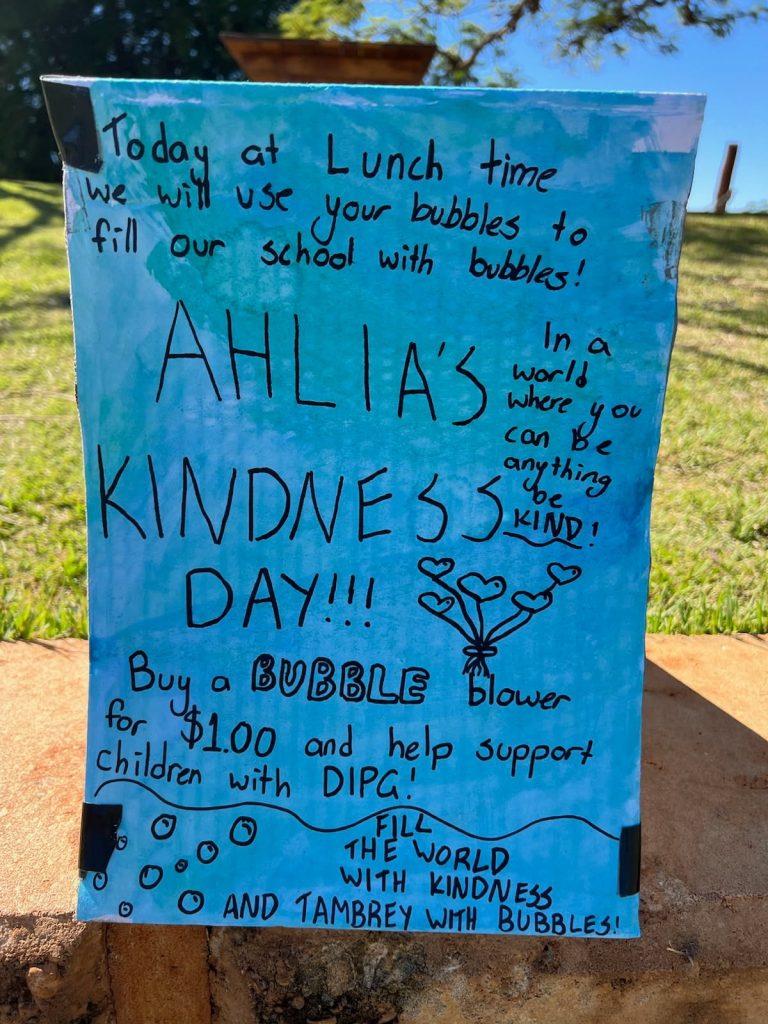 Today at Lunch time
we will use your bubbles to
fill our school with bubbles!
AHLIA'S
KINDNESS
DAY!!!
In a
world
where you
can be
anything
be
KIND!
Buy a BUBBLE blower
for $1.00 and help support
children with DIPG!
FILL
THE WORLD
WITH KINDNESS
AND TAMBREY WITH BUBBLES!